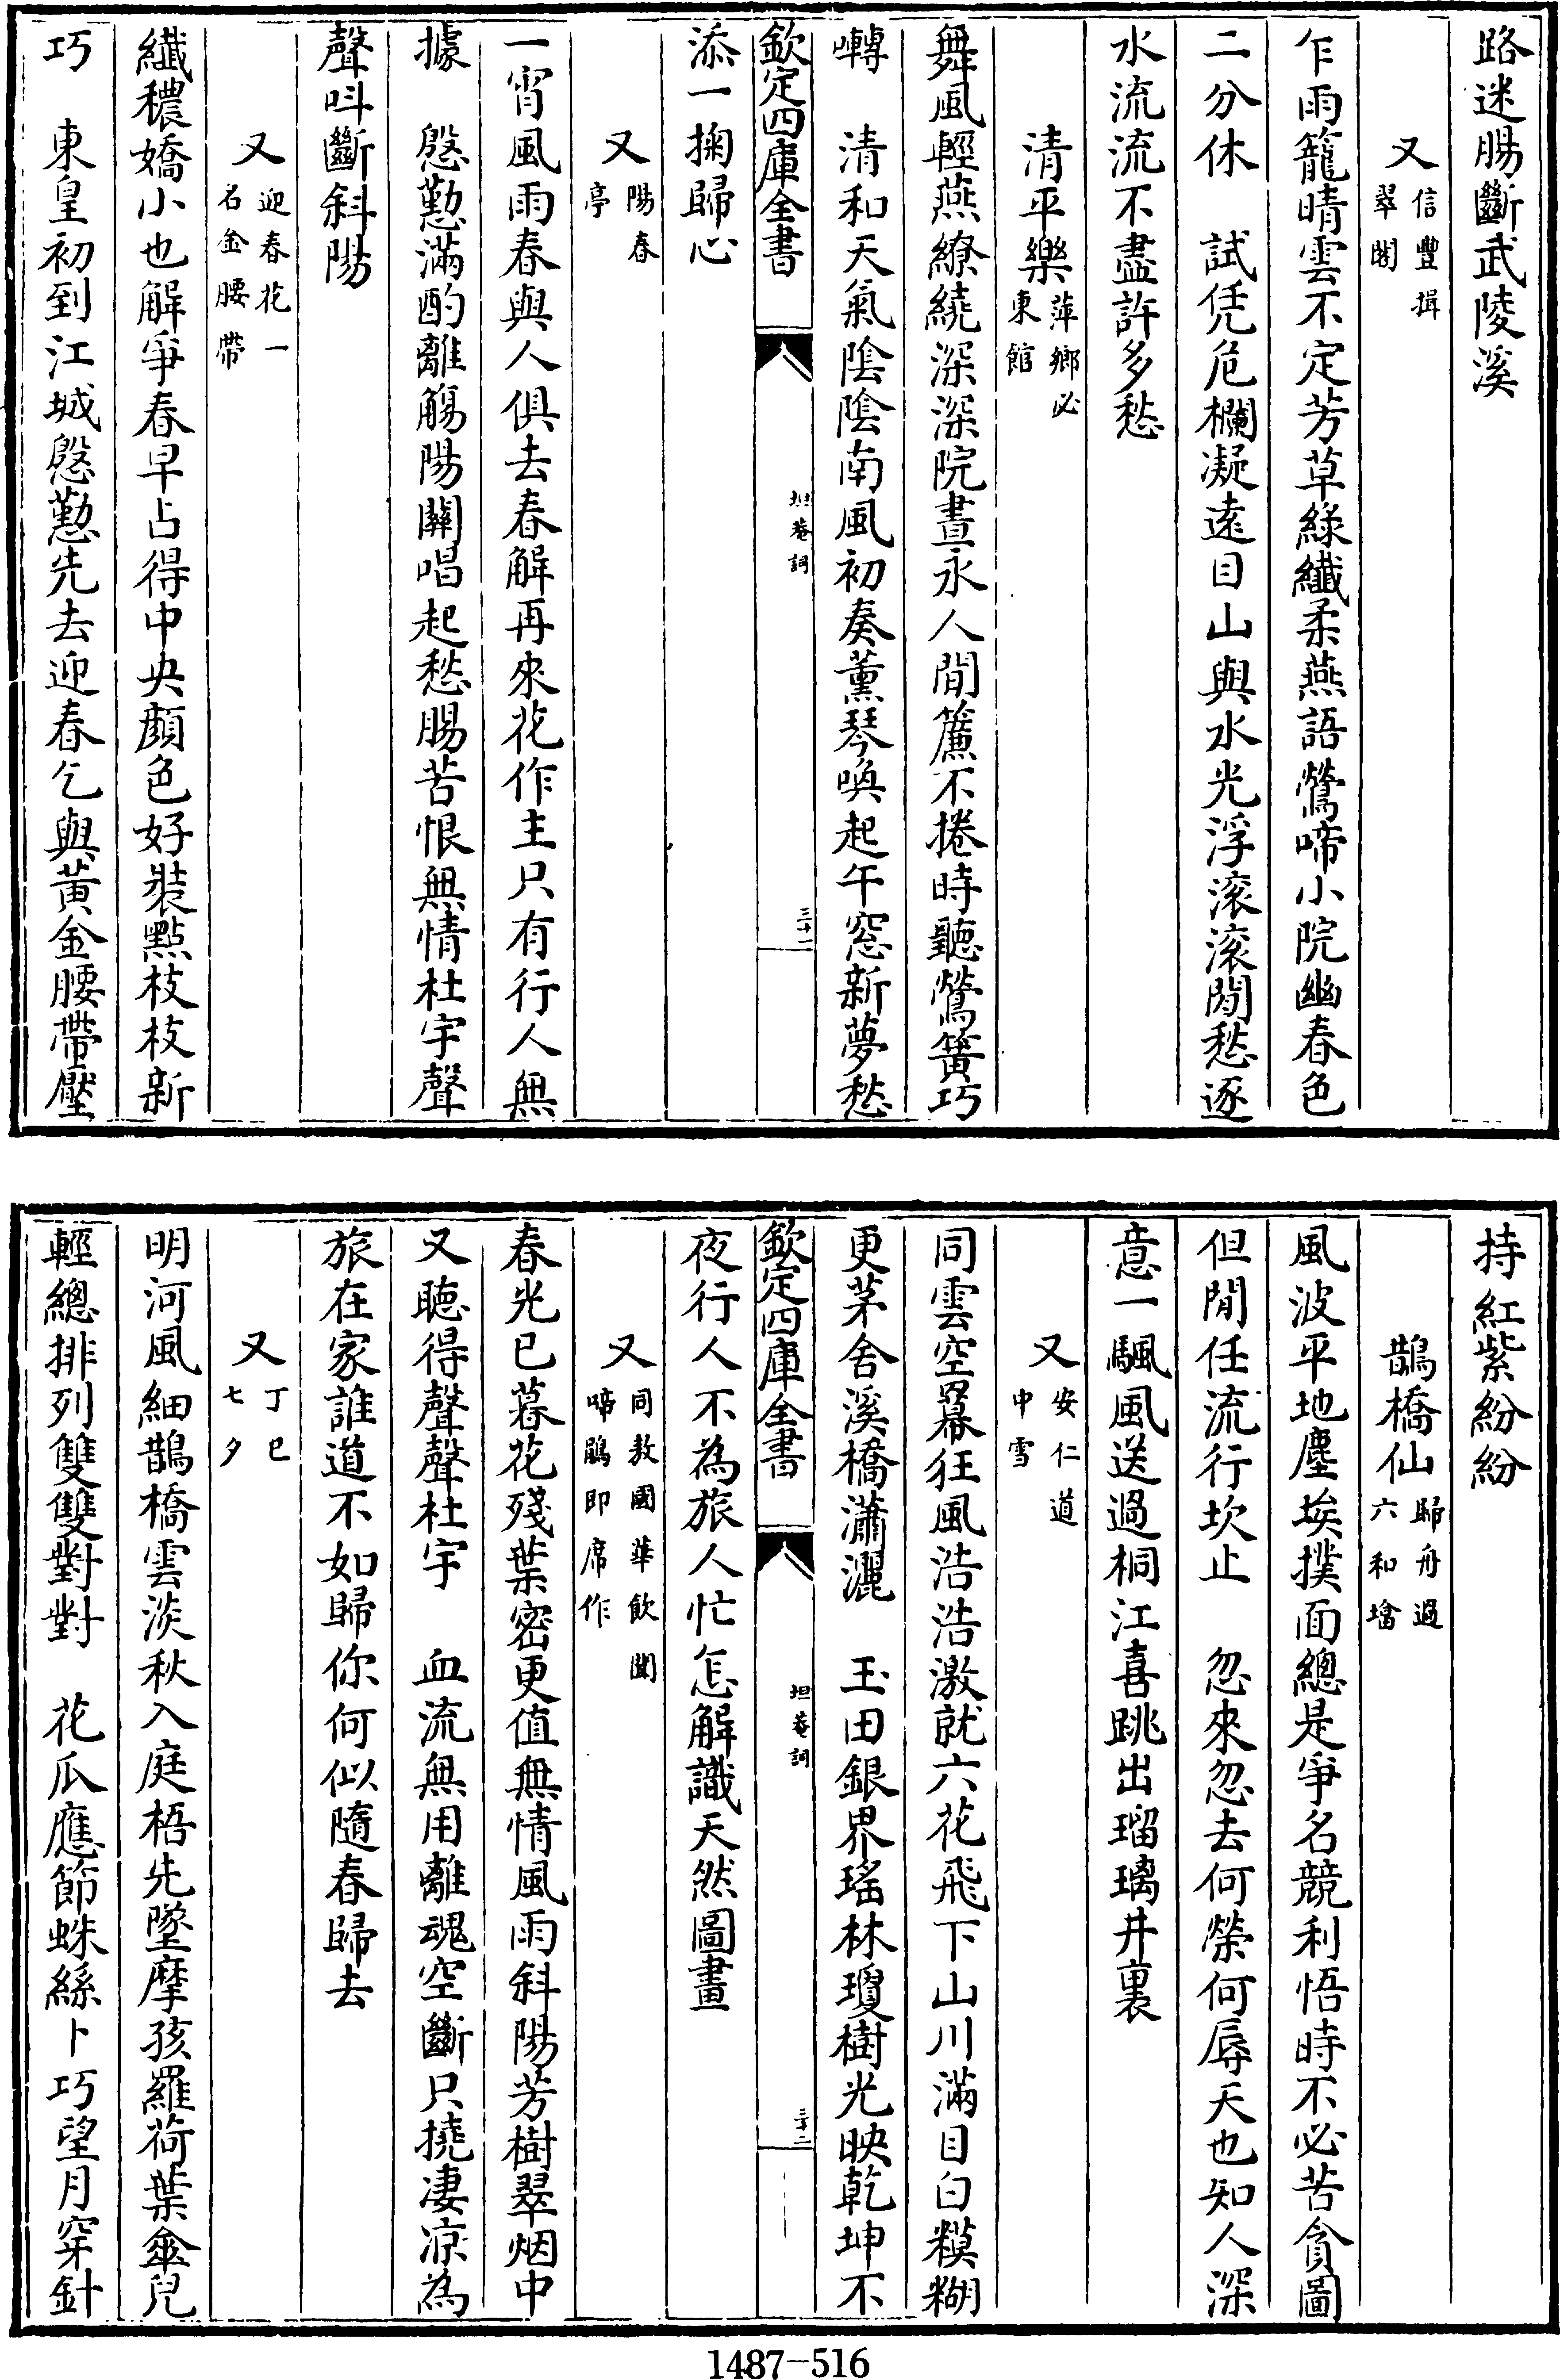 路迷腸斷武陵溪
又信豐揖
翠閣
乍雨籠晴雲不定芳草綠纖柔燕語鶯啼小院幽春色
二分休　試凭危欄凝遠目山與水光浮滚滚閒愁逐
水流流不盡許多愁
清平樂萍鄉必
東館
舞風輕燕繚繞深深院晝永人閒簾不捲時聽鶯簧巧
囀　清和天氣隂隂南風初奏薰琴喚起午窓新夢愁
添一掬歸心
欽定四庫全書
坦菴詞
三十一
又陽春
亭
一宵風雨春與人俱去春解再來花作主只有行人無
據　慇懃滿酌離觴陽關唱起愁腸苦恨無情杜宇聲
聲呌斷斜陽
又迎春花一
名金腰帶
纎穠嬌小也解爭春早占得中央顔色好裝點枝枝新
巧　東皇初到江城慇懃先去迎春乞與黄金腰帶壓
持紅紫紛紛
鵲橋仙歸舟過
六和塔
風波平地塵埃撲面總是爭名競利悟時不必苦貪圖
但閒任流行坎止　忽來忽去何榮何辱天也知人深
意一颿風送過桐江喜跳出瑠璃井裏
又安仁道
中雪
同雲空冪狂風浩浩激就六花飛下山川滿目白糢糊
更茅舍溪橋瀟灑　玉田銀界瑤林瓊樹光映乾坤不
夜行人不為旅人忙怎解識天然圖畫
欽定四庫全書
坦菴詞
三十二
又同敖國華飲聞
啼鵑即席作
春光已暮花殘葉密更值無情風雨斜陽芳樹翠烟中
又聽得聲聲杜宇　血流無用離魂空斷只撓凄凉為
旅在家誰道不如歸你何似隨春歸去
又丁巳
七夕
明河風細鵲橋雲淡秋入庭梧先墜摩孩羅荷葉傘兒
輕總排列雙雙對對　花瓜應節蛛絲卜巧望月穿針
1487-516